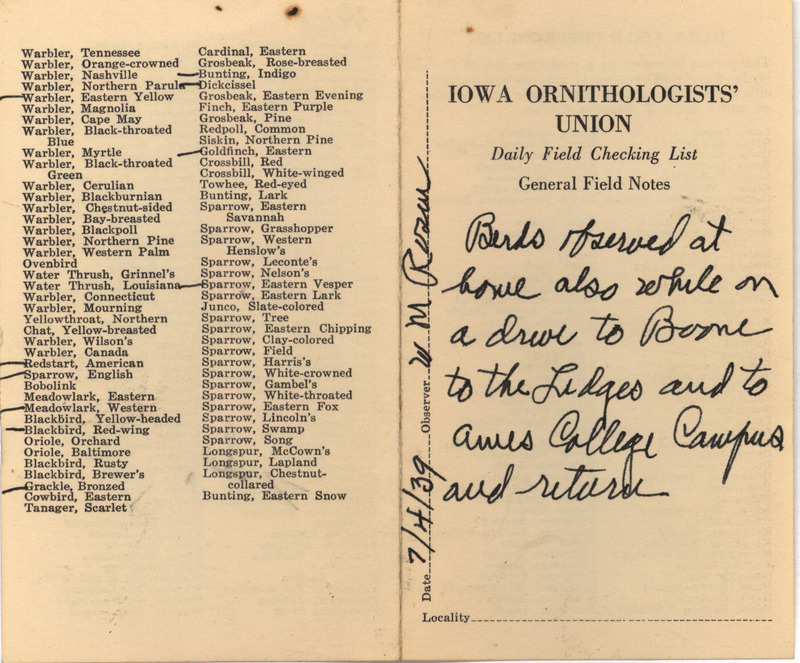 Warbler, Tennessee
Warbler, Orange-crowned
Warbler, Nashville
Warbler, Northern Parula
Warbler, Eastern Yellow
Warbler, Magnolia
Warbler, Cape May
Warbler, Black-throated
Blue
Warbler, Myrtle
Warbler, Black-throated
Green
Warbler, Cerulian
Warbler, Blackburnian
Warbler, Chestnut-sided
Warbler, Bay-breasted
Warbler, Blackpoll
Warbler, Northern Pine
Warbler, Western Palm
Ovenbird
Water Thrush, Grinnel's
Water Thrush, Louisiana
Warbler, Connecticut
Warbler, Mourning
Yellowthroat, Northern
Chat, Yellow-breasted
Warbler, Wilson's
Warbler, Canada
Redstart, American
Sparrow, English
Bobolink
Meadowlark, Eastern
Meadowlark, Western
Blackbird, Yellow-headed
Blackbird, Red-wing
Oriole, Orchard
Oriole, Baltimore
Blackbird, Rusty
Blackbird, Brewer's
Grackle, Bronzed
Cowbird, Eastern
Tanager, Scarlet
Cardinal, Eastern
Grosbeak, Rose-breasted
Bunting, Indigo
Dickcissel
Grosbeak, Eastern Evening
Finch, Eastern Purple
Grosbeak, Pine
Redpoll, Common
Siskin, Northern Pine
Goldfinch, Eastern
Crossbill, Red
Crossbill, White-winged
Towhee, Red-eyed
Bunting, Lark
Sparrow, Eastern
Savannah
Sparrow, Grasshopper
Sparrow, Western
Henslow's
Sparrow, Leconte's
Sparrow, Nelson's
Sparrow, Eastern Vesper
Sparrow, Eastern Lark
Junco, Slate-colored
Sparrow, Tree
Sparrow, Eastern Chipping
Sparrow, Clay-colored
Sparrow, Field
Sparrow, Harris's
Sparrow, White-crowned
Sparrow, Gambel's
Sparrow, White-throated
Sparrow, Eastern Fox
Sparrow, Lincoln's
Sparrow, Swamp
Sparrow, Song
Longspur, McCown's
Longspur, Lapland
Longspur, Chestnut-
collared
Bunting, Eastern Snow
Date 7/4/39 Observer W M Rosen
IOWA ORNITHOLOGISTS'
UNION
Daily Field Checking List
General Field Notes
Berds observed at
home also while on
a drive to Boone
to the Ledges and to
Ames College Campus
and return
Locality